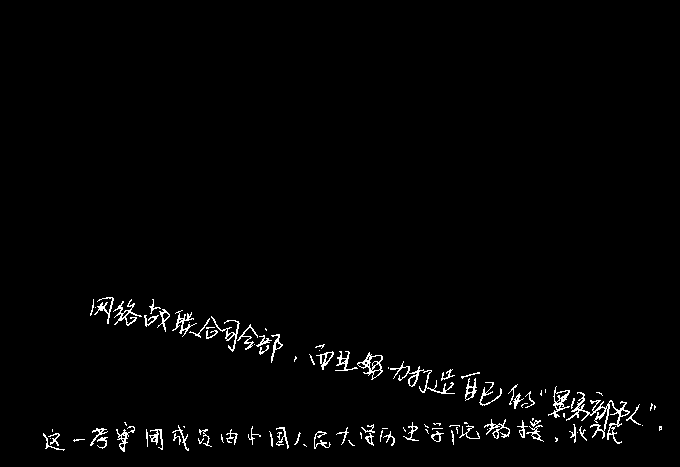 网络战联合司令部，而且努力打造自己的“黑客部队”。
这一考察团成员由中国人民大学历史学院教授、北方民